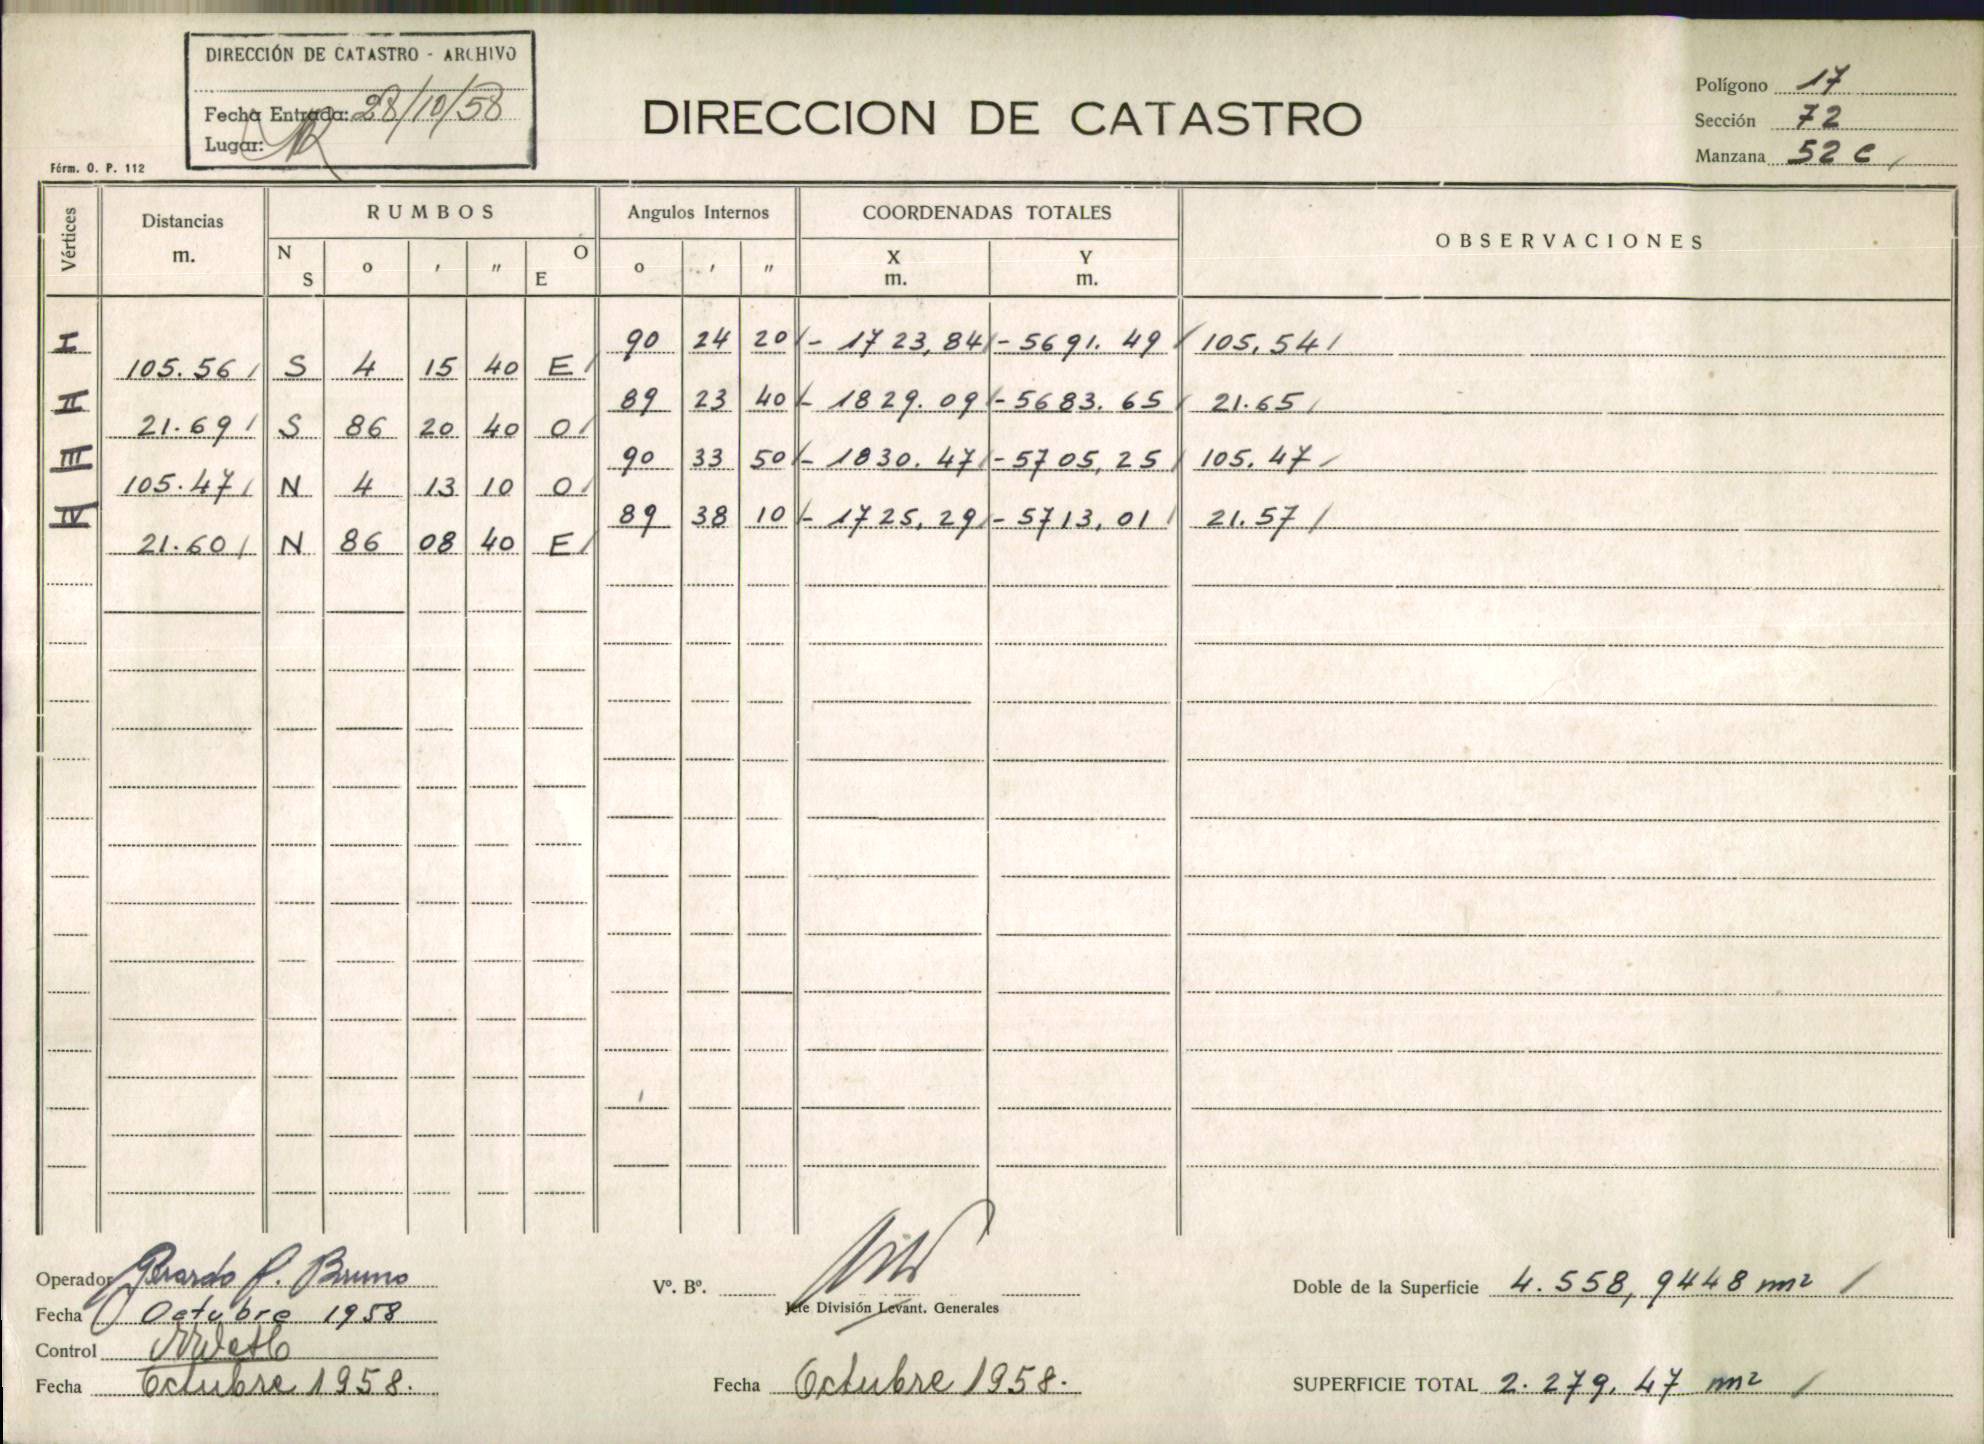 DIRECCIÓN DE CATASTRO - ARCHIVO
Fecha Entrada: 28/10/58
Lugar:
Fórm. O. P. 112
DIRECCION DE CATASTRO
Polígono 17
Sección 72
Manzana 52 C
Vértices Distancias m. RUMBOS Angulos Internos COORDENADAS TOTALES OBSERVACIONES
N S o ' " O E o ' " X m. Y m.
I 90 24 20 - 1723,84 - 5691.49 105,54
105.56 S 4 15 40 E
II 89 23 40 - 1829.09 - 5683.65 21.65
21.69 S 86 20 40 O
III 90 33 50 - 1830.47 - 5705,25 105.47
105.47 N 4 13 10 O
IV 89 38 10 - 1725,29 - 5713,01 21.57
21.60 N 86 08 40 E
Operador Gerardo P. Bruno
Fecha Octubre 1958
Control
Fecha Octubre 1958.
Vº. Bº.
Jefe División Levant. Generales
Fecha Octubre 1958.
Doble de la Superficie 4.558,9448 m²
SUPERFICIE TOTAL 2.279.47 m²